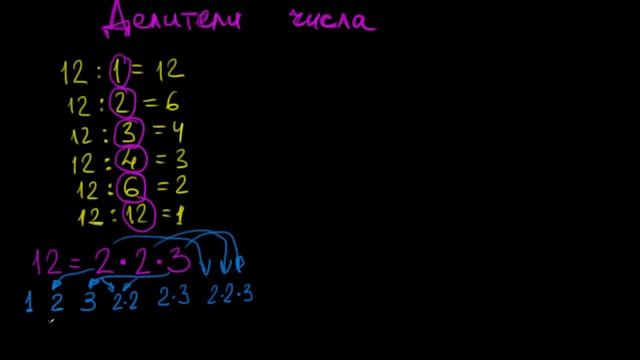 Делители числа
12 : 1 = 12
12 : 2 = 6
12 : 3 = 4
12 : 4 = 3
12 : 6 = 2
12 : 12 = 1
12 = 2 · 2 · 3
1 2 3 2·2 2·3 2·2·3